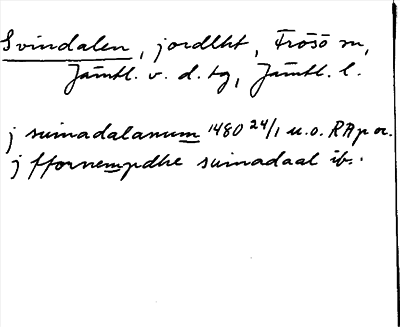 Svindalen, jordlht, Frösö sn,
Jämtl. v. d. tg, Jämtl. l.
j suinadalanum 1480 24/1 u.o. RAp or.
j ffornempdhe suinadaal ib.